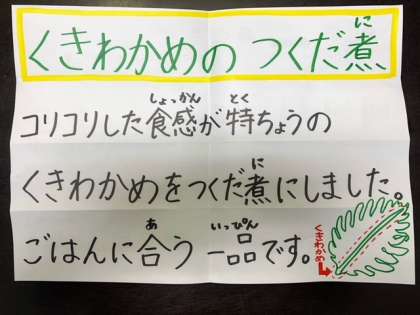 くきわかめの つくだ煮
に
コリコリした食感が特ちょうの
しょっかん とく
くきわかめをつくだ煮にしました。
に
ごはんに合う一品です。
あ いっぴん
くきわかめ